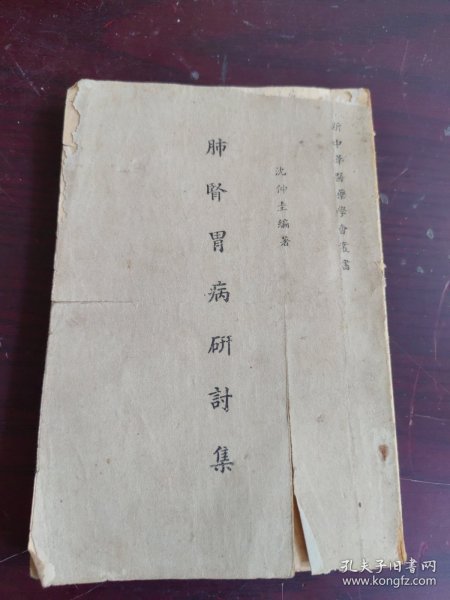 新中華醫藥學會叢書
沈仲圭編著
肺腎胃病研討集
孔夫子旧书网
www.kongfz.com